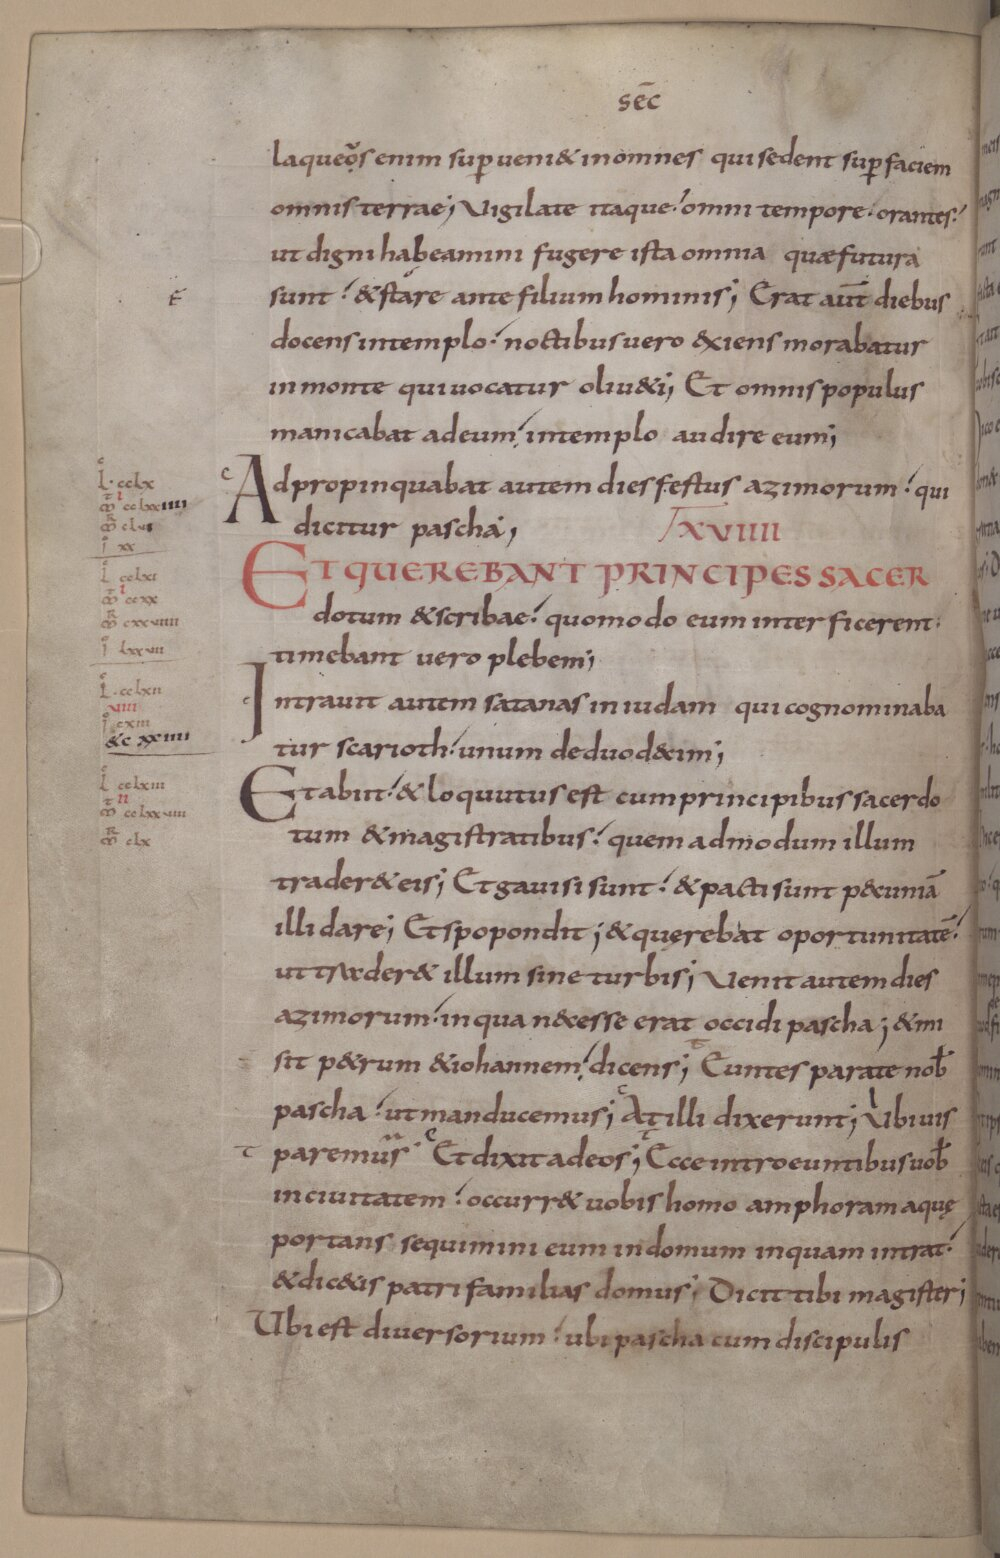 sēc
laqueos enim sup̱ueni& inomnes quisedent sup̱faciem
omnis terrae; Uigilate itaque omni tempore orantes
ut digni habeamini fugere ista omnia quæfutura
sunt &stare ante filium hominis; Erat aūt diebus
docens intemplo noctibus uero &xiens morabatur
inmonte quiuocatur oliu&i; Et omnis populus
manicabat adeum intemplo audire eum;
Adpropinquabat autem dies festus azimorum qui
dicitur pascha; XVIIII
ET QUEREBANT PRINCIPES SACER
dotum &scribae quomodo eum interficerent.
timebant uero plebem;
Intrauit autem satanas iniudam qui cognominaba
tur scarioth unum deduod&im;
Et abiit & loquutus est cumprincipibus sacerdo
tum &magistratibus quemadmodum illum
trader& eis; Et gauisi sunt & pacti sunt p&cuniā
illi dare; Et spopondit; & quęrebat oportunitatē
ut trader& illum sine turbis; Uenit autem dies
azimorum inqua n&cesse erat occidi pascha; & mi
sit p&rum &iohannem dicens; Euntes parate nob̄
pascha ut manducemus; At illi dixerunt; Ubi uis
paremus Et dixit adeos; Ecce introeuntibus uob̄
inciuitatem occurr& uobis homo amphoram aquę
portans sequimini eum indomum inquam intrat
&dic&is patri familias domus; Dicit tibi magister;
Ubi est diuersorium ubi pascha cum discipulis